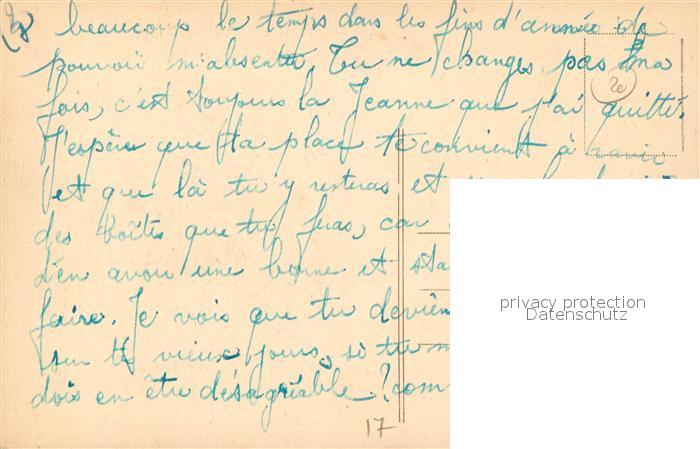 2)
beaucoup le temps dans les fins d'année de
pouvoir m'absenter. Tu ne changes pas ma
fois, c'est toujours la Jeanne que j'ai quitté.
20
J'espère que ta place te convient à ravir
et que là tu y resteras et
des boîtes que tu feras, car
d'en avoir une bonne et sta
faire. Je vois que tu devien
privacy protection
Datenschutz
sur tes vieux jours, si tu m
dois en être désagréable? com
17